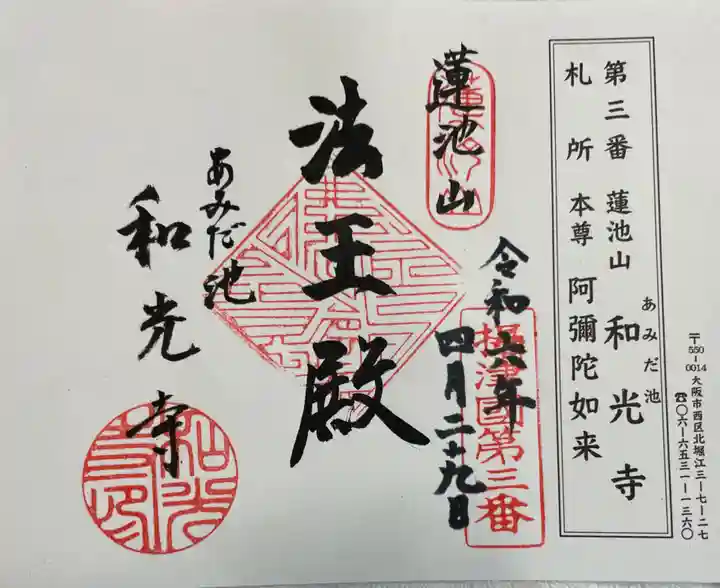 第三番 蓮池山 和光寺
あみだ池
札所 本尊 阿彌陀如来
〒550-0014 大阪市西区北堀江三ー七ー二七
☎〇六ー六五三一ー一三六〇
蓮池山
令和六年
四月二十九日
摂津国第三番
法王殿
あみだ池
和光寺